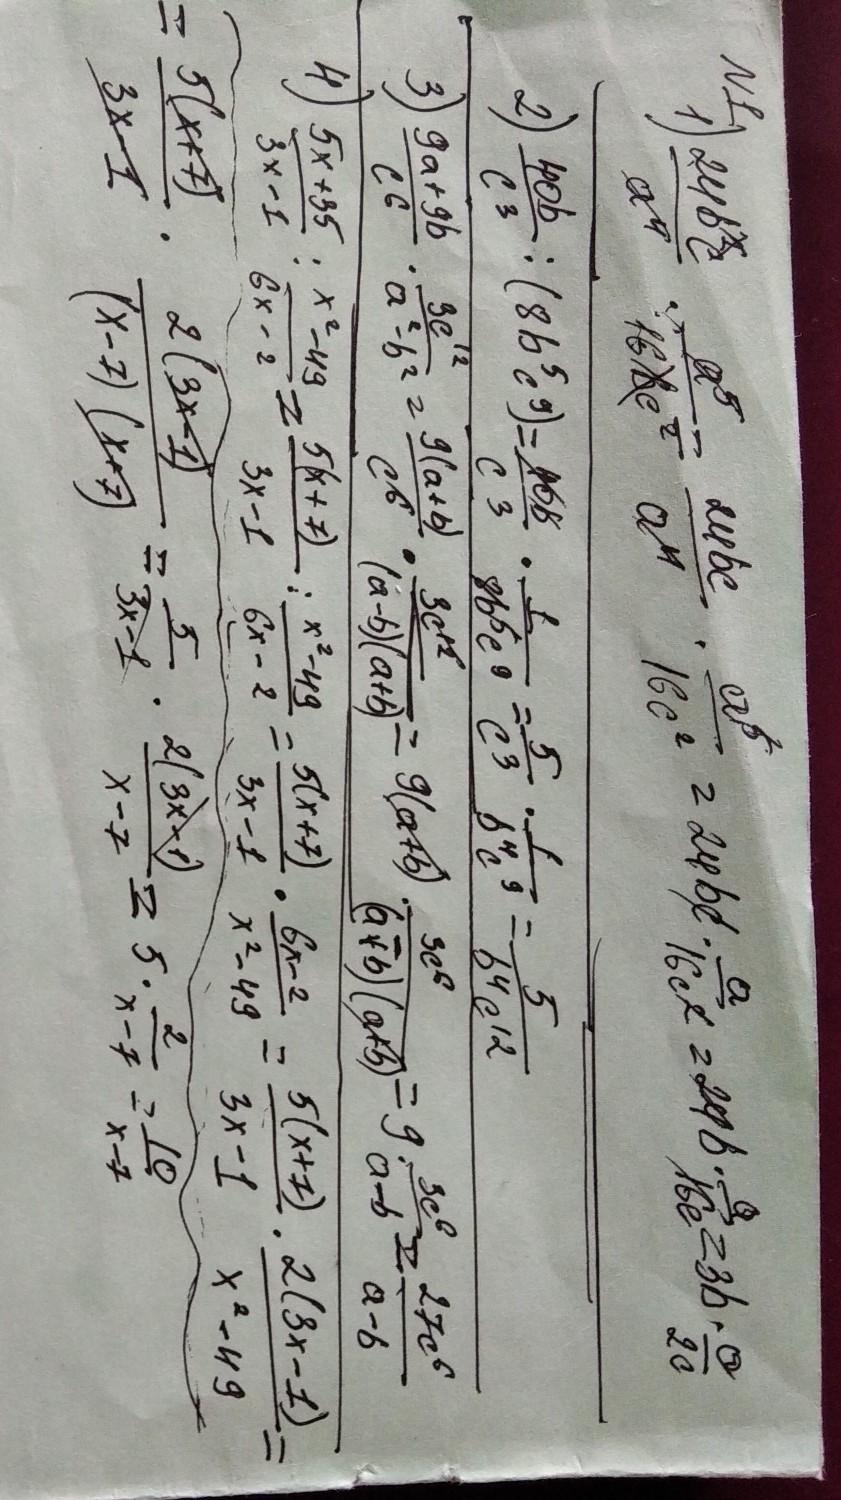 N1
1) 24b²c/a⁴ · a⁵/16bc² = 24bc/a⁴ · a⁵/16c² = 24bc · a/16c² = 24b · a/16c = 3b · a/2c
2) 40b/c³ : (8b⁵c⁹) = 40b/c³ · 1/8b⁵c⁹ = 5/c³ · 1/b⁴c⁹ = 5/b⁴c¹²
3) 9a+9b/c⁶ · 3c¹²/a²-b² = 9(a+b)/c⁶ · 3c¹²/(a-b)(a+b) = 9(a+b) · 3c⁶/(a-b)(a+b) = 9 · 3c⁶/a-b = 27c⁶/a-b
4) 5x+35/3x-1 : x²-49/6x-2 = 5(x+7)/3x-1 : x²-49/6x-2 = 5(x+7)/3x-1 · 6x-2/x²-49 = 5(x+7)/3x-1 · 2(3x-1)/x²-49 =
= 5(x+7)/3x-1 · 2(3x-1)/(x-7)(x+7) = 5/3x-1 · 2(3x-1)/x-7 = 5 · 2/x-7 = 10/x-7